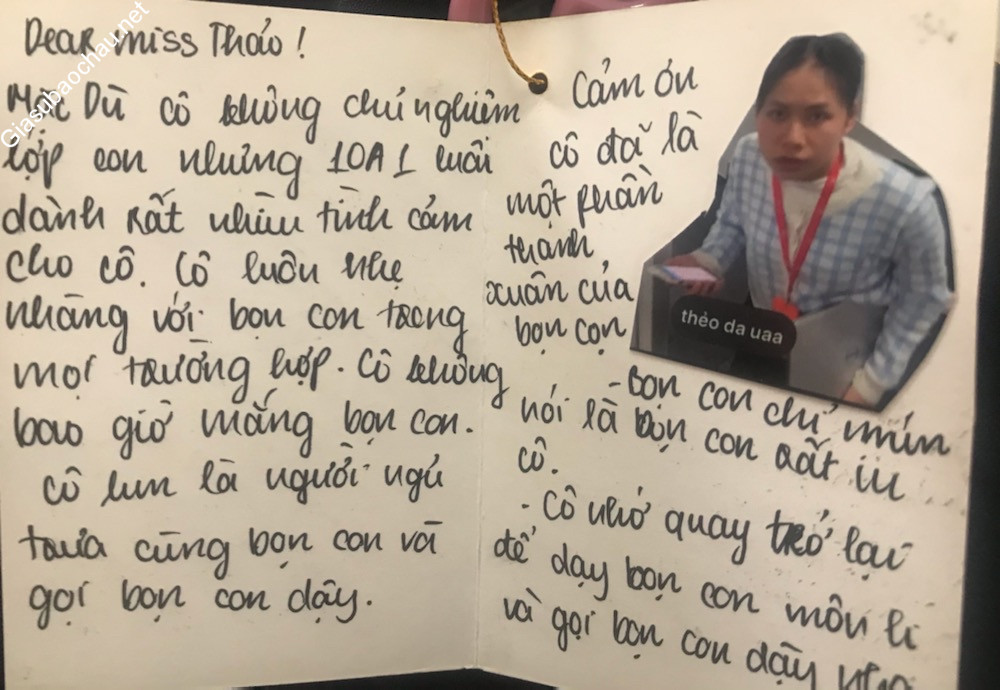 Dear miss Thảo!
Mặc Dù cô không chủ nghiệm
lớp con nhưng 10A1 luôn
dành rất nhìu tình cảm
cho cô. Cô luôn nhẹ
nhàng với bọn con trong
mọi trường hợp. Cô không
bao giờ mắng bọn con.
cô lun là người ngủ
trưa cùng bọn con và
gọi bọn con dậy.
Cảm ơn
cô đã là
một phần
thanh
xuân của
bọn con
- Bọn con chỉ muốn
nói là bọn con rất iu
cô.
- Cô nhớ quay trở lại
để dạy bọn con môn lí
và gọi bọn con dậy nha
thẻo da uaa
Giasubaochau.net